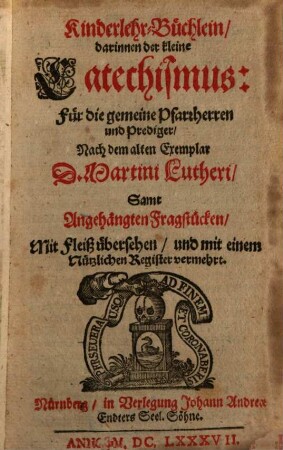 Kinderlehr-Büchlein/
darinnen der kleine
Catechismus:
Für die gemeine Pfarrherren
und Prediger/
Nach dem alten Exemplar
D. Martini Lutheri/
Samt
Angehängten Fragstücken/
Mit Fleiß übersehen / und mit einem
Nützlichen Register vermehrt.
PERSEVERA USQ AD FINEM ET CORONABERIS
Nürnberg / in Verlegung Johann Andreæ
Endters Seel. Söhne.
M, DC, LXXXVII.